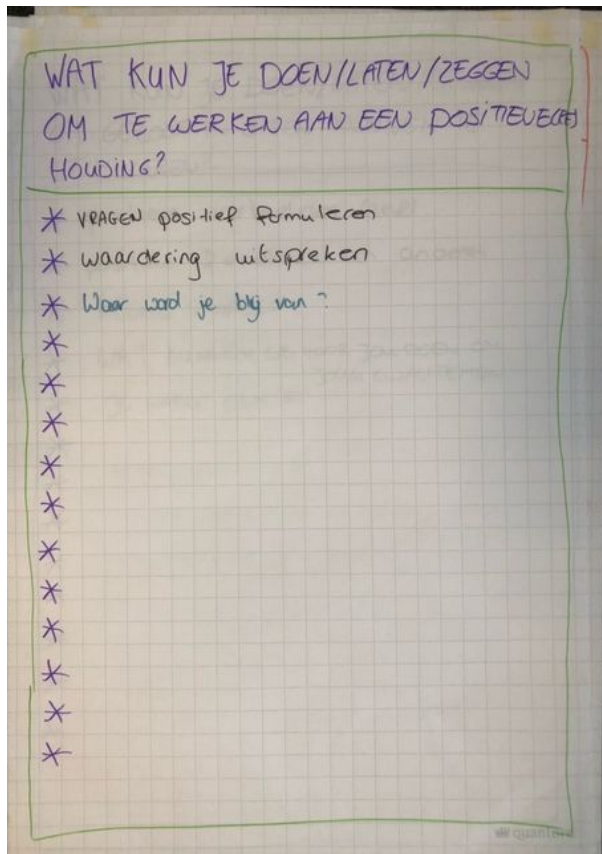 WAT KUN JE DOEN/LATEN/ZEGGEN
OM TE WERKEN AAN EEN POSITIEVE(RE)
HOUDING?
* VRAGEN positief formuleren
* waardering uitspreken
* Waar word je blij van?
*
*
*
*
*
*
*
*
*
*
*